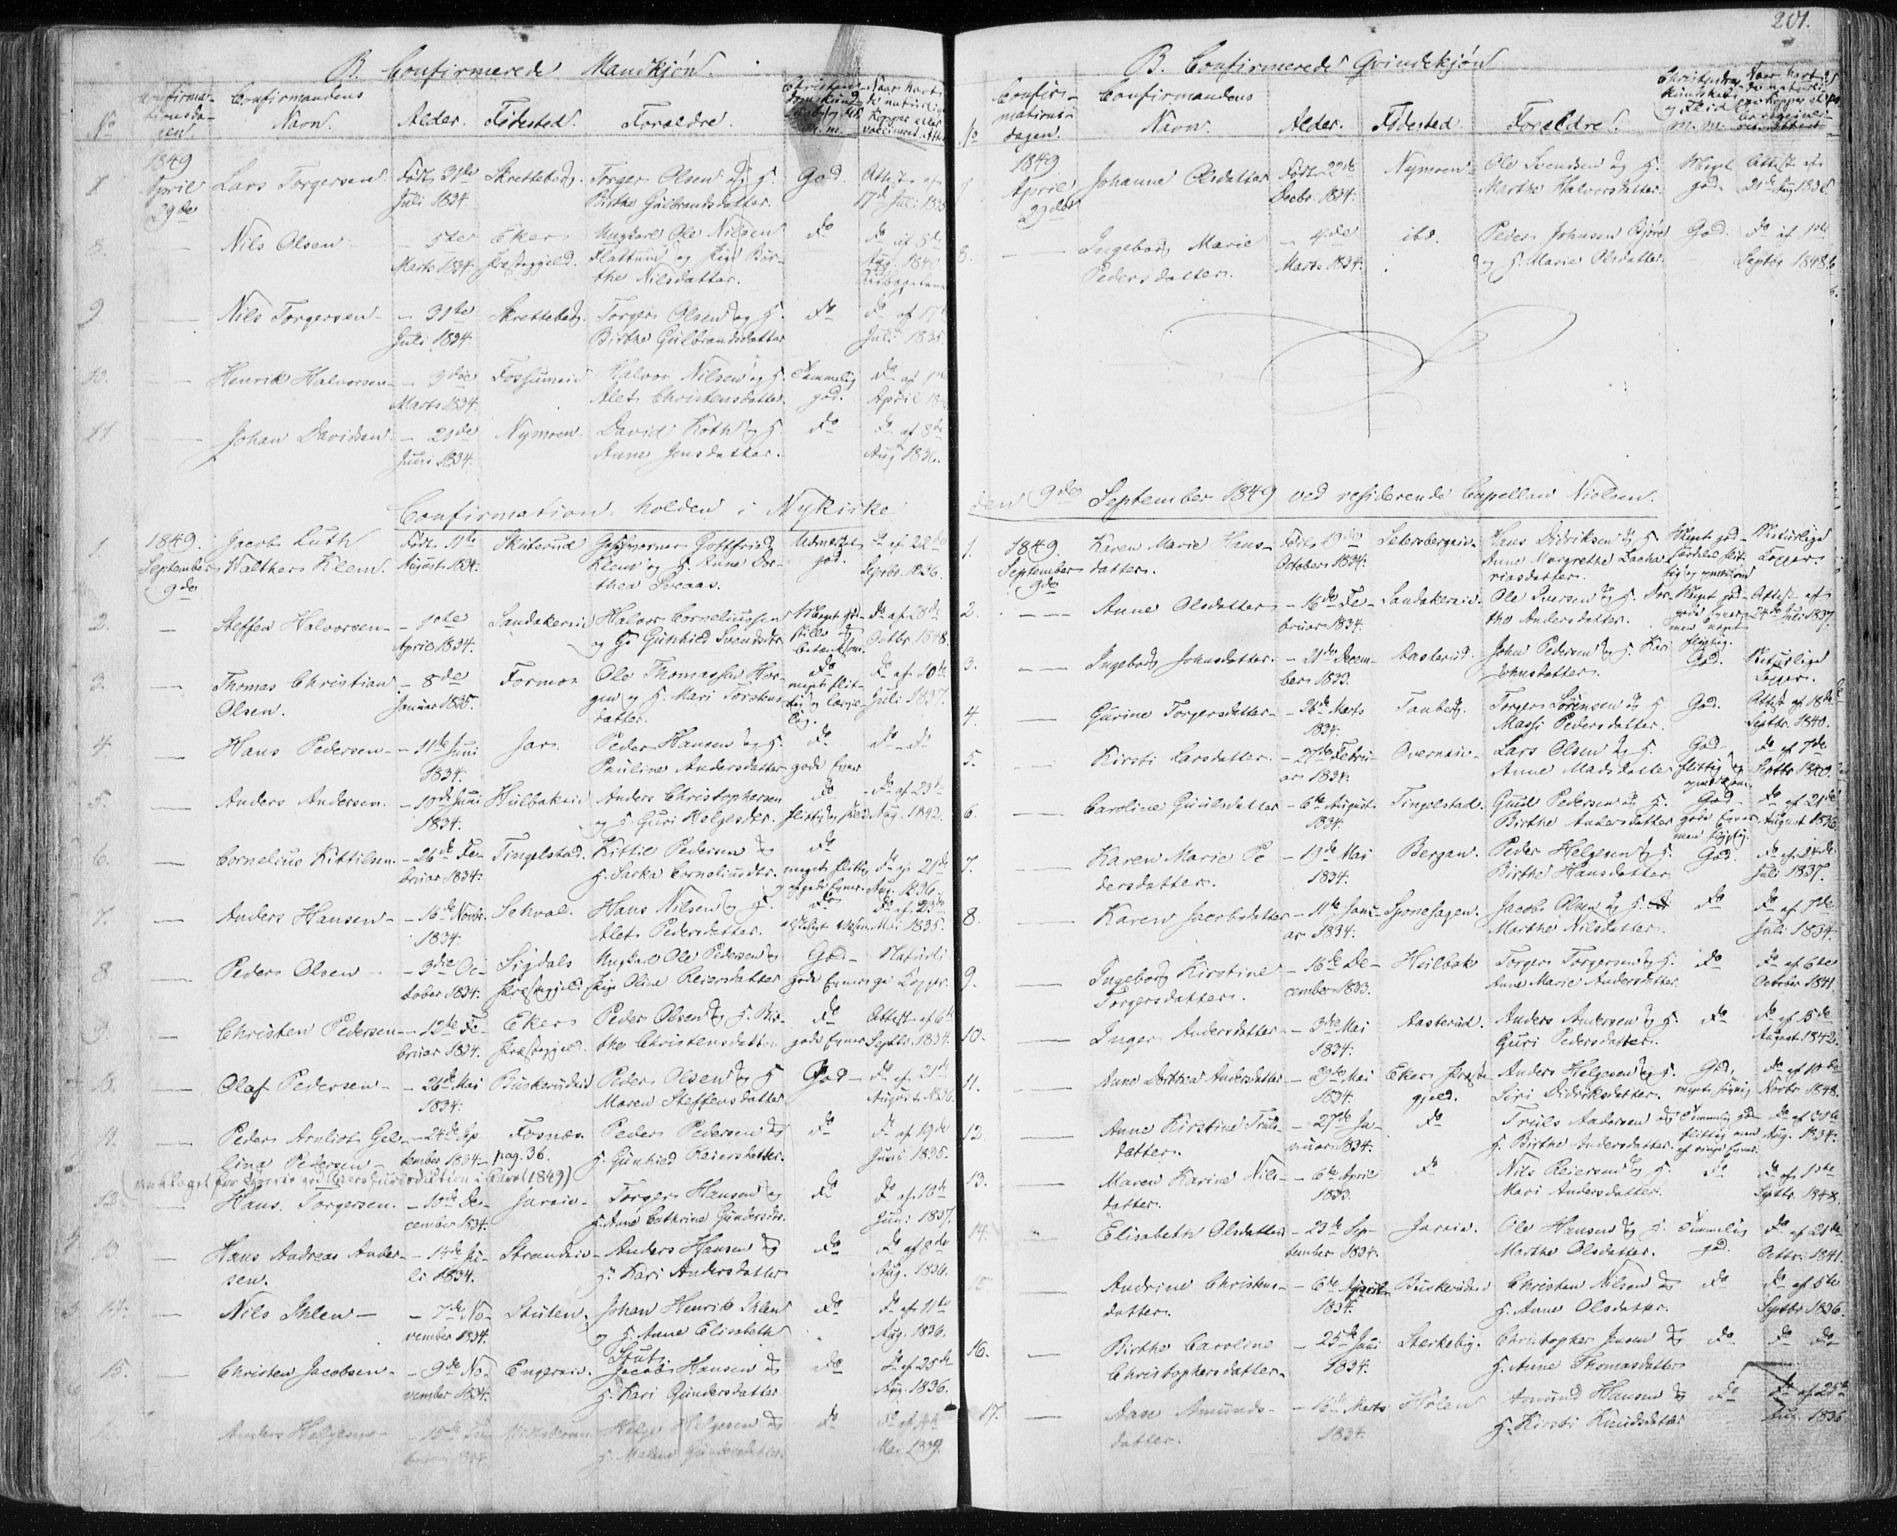 B. Confirmerede Mandkjøn.
No
Confirma-
tionsda-
gen.
Confirmandens
Navn.
Alder.
Fødested.
Forældre.
1849
April
29de
Lars Torgersen
Født 31te
Juli 1834.
Skrettebeg.
Torger Olsen og H.
Birthe Gulbrandsdatter.
God.
Attest af
17de Juli 1835
8.
Nils Olsen
– 5te
Marts 1834.
Ekers
Præstegjeld.
Ungkarl Ole Nilsen
Flattum og Pige Bir-
the Nilsdatter.
do
do af 8de
Aug. 1840
9
Nils Torgersen
– 31te
Juli 1834
Skrettebeg.
Torger Olsen og H.
Birthe Gulbrandsdatter
do
do af 17
Juli 1835.
10.
Henrik Halvorsen
– 3die
Marts 1834.
Fossumeid
Halvor Nilsen og H.
Alet Christensdatter.
Temmelig
god.
do af 1
April
11
Johan Davidsen
– 21de
Juni 1834.
Nymoen.
David Roth og H.
Anne Jensdatter.
do
do af 8de
Aug 1836.
Confirmation holden i Nykirke
1.
1849.
September
9de
Jacob Luth
Walther Klem.
Født 11te
August 1834.
Skuterud
Gottfried
Klem og H. Anne Dor-
thea Svaas.
Udmærket
god.
do af 22de
Septbr. 1836.
2.
Steffen Halvorsen
– 1ste
April 1834.
Sandakereid
Halvor Corneliussen
og H. Gunhild Svendsdr.
do af 28de
Octbr. 1848.
3.
Thomas Christian
Olsen.
– 8de
Januar 1835.
Formoe
Ole Thomassen Hor-
gen og H. Mari Torstens
datter.
do
meget flit-
tig
do af 10de
Juli 1837.
4.
Hans Pedersen
– 11te Juni
1834.
Jar.
Peder Hansen og H.
Pauline Andersdatter
do
gode Evner
do do
5.
Anders Andersen.
– 19de Juni
1834.
Hulbakeid
Anders Christophersen
og H. Guri Helgesdr.
do
do af 23de
Aug. 1842.
6.
Cornelius Kittilsen
– 26de Fe-
bruar 1834.
Tingelstad.
Kittil Pedersen og
H. Sarka Corneliusdr.
do
meget flittig
og gode Evner
do af 21de
Aug. 1836.
7.
Anders Hansen
– 16de Novbr.
1834.
Sehval.
Hans Nilsen og H.
Alet Pedersdatter.
do
do af 23de
Mai 1835.
8
Peder Olsen
– 3die Oc-
tober 1834.
Sigdals
Præstegjeld
Ungkarl Ole Pedersen og
Pige Olive Reiersdatter
God
gode Evner
Naturli
ge Kopper.
9
Christen Pedersen
– 12te Fe-
bruar 1834.
Ekers
Præstegjeld.
Peder Olsen og H. Bir-
the Christensdatter
do
gode Evner
Attest af 6te
Septbr. 1834.
10.
Olaf Pedersen
– 26de Mai
1834.
Buskerudeid
Peder Olsen og H
Maren Steffensdatter
God
do af 21de
August 1836.
11.
Peder Arnliot Gel-
line Pedersen
– 24de Sep
tember 1834
Fosnæs.
pag. 36.
Peder Pedersen og
H. Gunhild Reiersdatter.
do
do af 19de
Juni 1835.
12.
Hans Torgersen.
– 10de De-
cember 1834.
Jareie.
Torger Hansen og
H. Anne Cathrine Gundersdr.
do
do af 10de
Juni 1837.
13
Hans Andreas Ander-
sen.
– 14de Ju-
li 1834.
Strandeie
Anders Hansen og
H. Kari Andersdatter
do
do af 8de
Aug. 1836.
14.
Nils Ihlen
– 7de No-
vember 1834.
Stuten.
Johan Henrik Ihlen
og H. Anne Elisabeth
Stut.
do
do af 11te
Aug. 1836.
15.
Christen Jacobsen
– 9de No-
vember 1834.
Engereie.
Jacob Hansen og
H. Kari Gundersdatter
do
do af 25de
Aug. 1836.
Anders Helgesen
Helge Helgesen og
H. Malene Gundersdatter
do
Mai 1839.
201.
B. Confirmerede Qvindekjøn
No
Confir-
mations-
dagen.
Confirmandens
Navn.
Alder.
Fødested.
Forældre.
1849
April
29de
Johanne Olsdatter
Født 22de
Decbr. 1834.
Nymoen.
Ole Svendsen og H.
Marthe Halvorsdatter.
Meget
god.
Attest af
21de Aug 1836
8.
Ingeborg Marie
Pedersdatter.
– 4de
Marts 1834.
ibd.
Peder Johnsen Bjøre
og H. Marie Olsdatter
God.
do af 1ste
Septbr 1848
den 9de September 1849 ved residerende Capellan Nielsen.
1.
1849.
September
9de
Karen Marie Hans-
datter.
Født 29de
October 1834.
Setersbergeie.
Hans Didriksen og H
Anne Margrethe Zacha
riasdatter.
Naturlige
Kopper.
2.
Anne Olsdatter
– 16de Fe-
bruar 1834.
Sandakereie.
Ole Iversen og H. Dor-
the Andersdatter.
Attest af
24de Juli 1837.
3.
Ingeborg Johnsdatter.
– 21de Decem-
ber 1833.
Aasterud.
John Pedersen og H. Kari
Johnsdatter.
God.
Naturlige
Kopper.
4.
Gurine Torgersdatter
– 26de Marts
1834.
Tanberg.
Torger Sørensen og H
Massi Pedersdatter.
God.
Attest af 18de
Septbr. 1840.
5.
Kirsti Larsdatter.
– 27de Febru-
ar 1834.
Overneie.
Lars Olsen og H
Anne Madsdatter
God
flittig og
do af 7de
Septbr 1840.
6.
Caroline Gulsdatter
– 6te August
1834.
Tingelstad.
Gudl Pedersen og H.
Birthe Andersdatter
God
gode Evner
men
do af 21de
August 1836.
7.
Karen Marie Pe
dersdatter.
– 19de Mai
1834.
Bergan.
Peder Helgesen og H.
Birthe Hansdatter.
God.
do af 24de
Juli 1837.
8.
Karen Jacobsdatter
– 11te Janu-
ar 1834.
Sponehagen.
Jacob Olsen og H.
Marthe Nilsdatter.
do
do af 7de
Juli 1834.
9.
Ingeborg Kirstine
Torgersdatter.
– 16de De-
cember 1833.
Hulbak
Torger Torgersen og H.
Anne Marie Andersdatter
do
do af 6te
October 1841.
10.
Inger Andersdatter
– 3die Mai
1834.
Aasterud.
Anders Andersen og H
Guri Pedersdatter.
do
do af 5de
August 1842.
11.
Anne Dorthea Andersdatter
– 29de Mai
1834.
Ekers Præste
gjeld.
Anders Helgesen og H.
Siri Didriksdatter.
God,
meget
do af 10de
Novbr. 1848.
12.
Anne Kirstine Truls-
datter.
– 27de Ja-
nuar 1834.
do
Truls Andersen og
H. Birthe Andersdatter.
Temmelig god
flittig men
af ringe Evner.
Aug. 1834.
13.
Maren Karine Nils-
datter.
– 6te April
1833.
do
Nils Reiersen og H
Mari Andersdatter.
do
do af 1ste
Septbr. 1848.
14.
Elisabeth Olsdatter
– 23de Sep-
tember 1834.
Jareie.
Ole Hansen og H.
Marthe Olsdatter.
Temmelig
god.
do af 21de
Octbr. 1841.
15.
Andrine Christens-
datter.
– 6te April
1834.
Buskerudeie
Christen Nilsen og
H. Anne Olsdatter.
do
do af 5te
Septbr 1836.
16.
Birthe Caroline
Christophersdatter.
– 25de Juni
1834.
Sterkeby.
Christopher Jensen og
H. Anne Thomasdatter
do
do do
17.
Aase Amunds-
datter.
– 16de Marts
1834.
Hølen
Amund Hansen og
H. Kirsti Knudsdatter
do
do af 25de
Aug. 1835